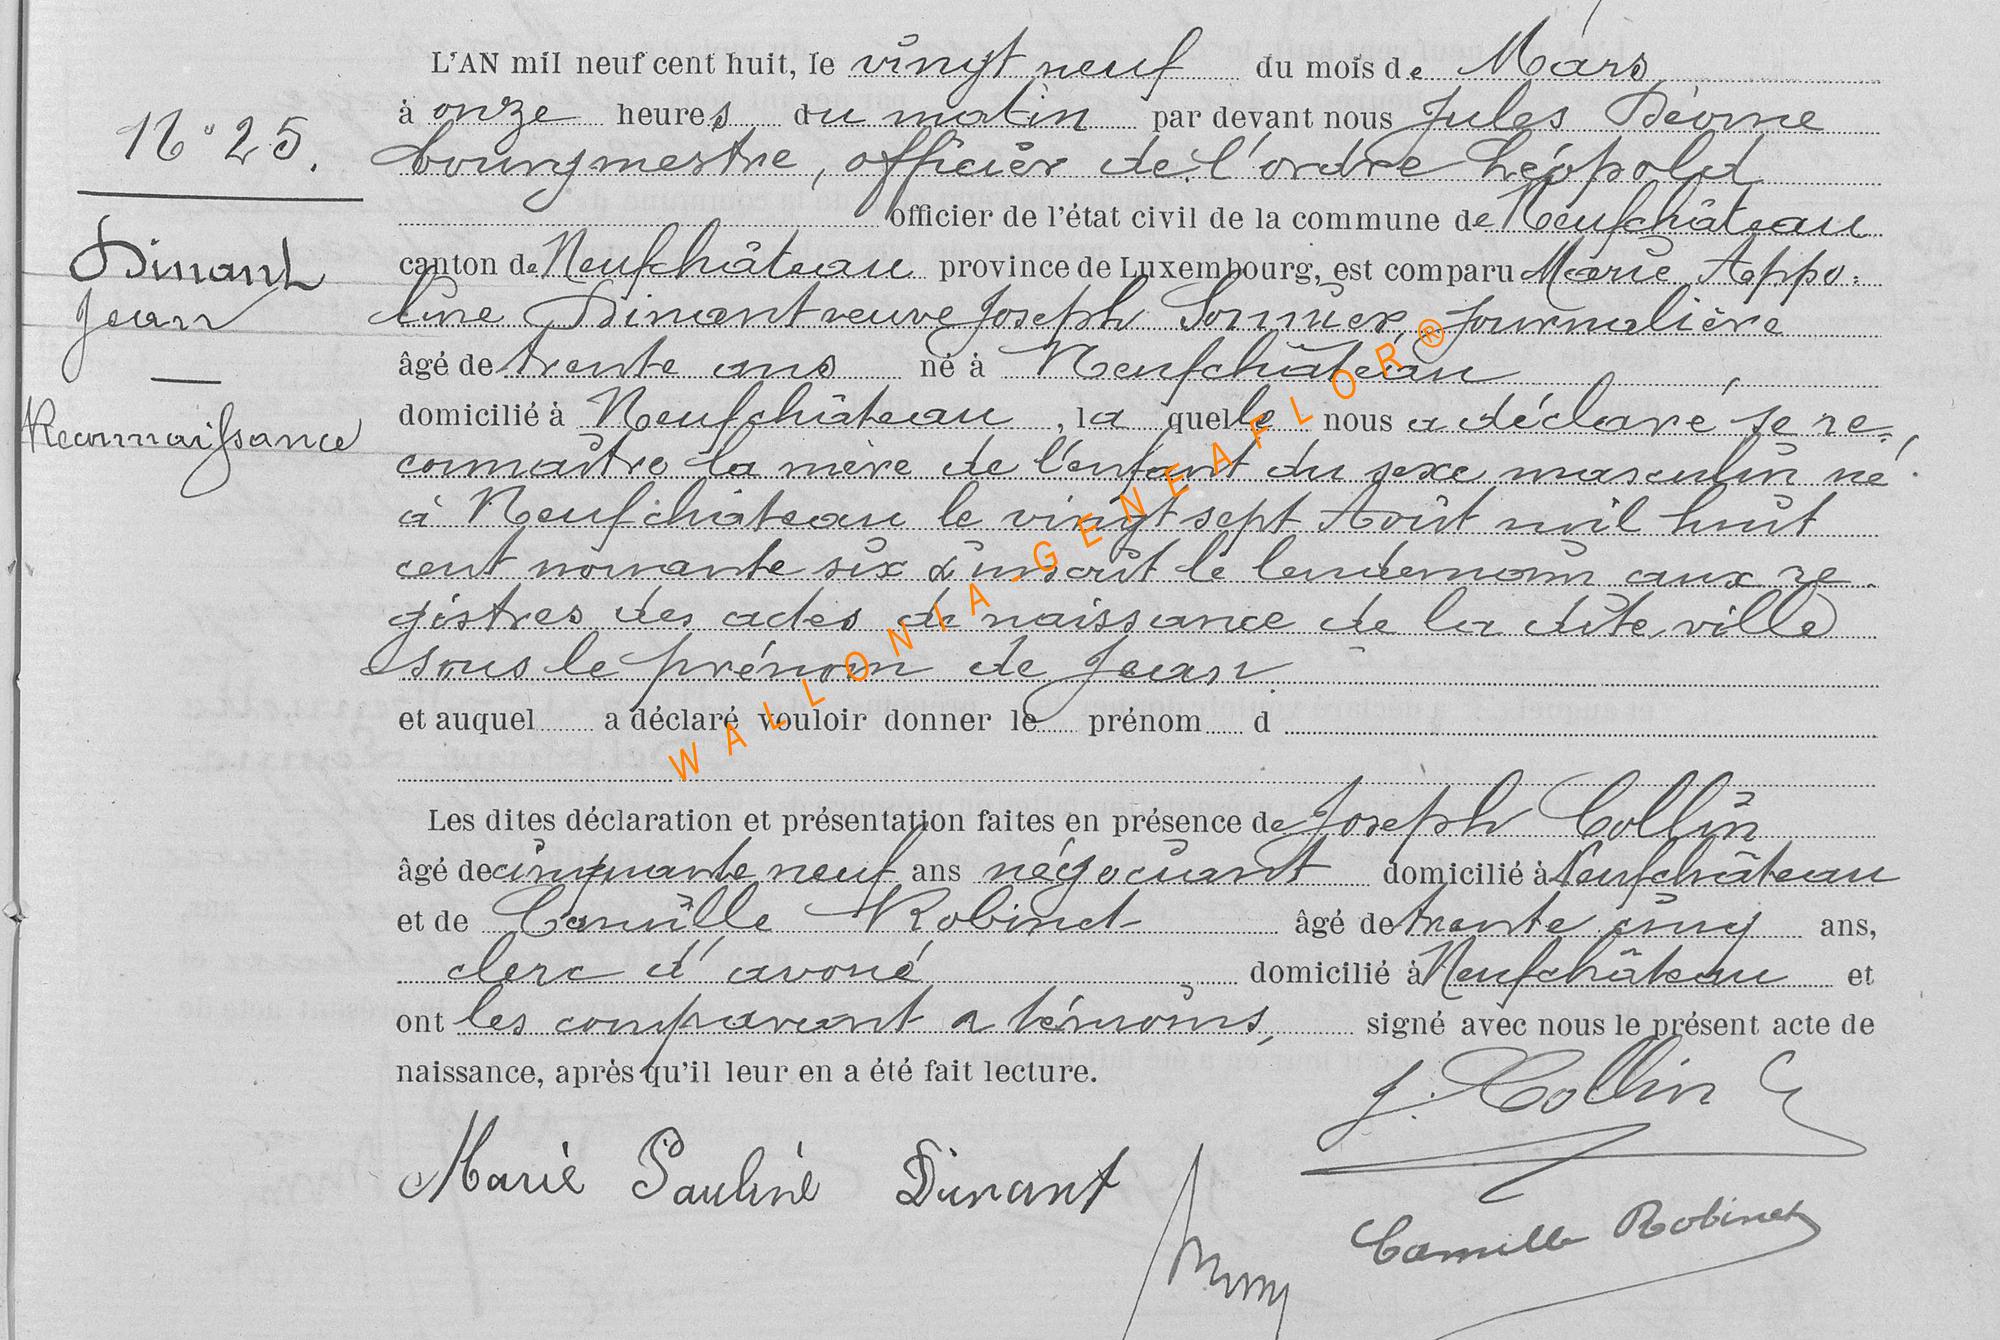 L'AN mil neuf cent huit, le vingt neuf du mois de Mars
N° 25.
à onze heures du matin par devant nous Jules
bourgmestre, officier de l'ordre Léopold
officier de l'état civil de la commune de Neufchâteau
Dinant
canton de Neufchâteau province de Luxembourg, est comparu Marie Appo=
Jean
line Dinant veuve Joseph journalière
âgé de trente ans né à Neufchâteau,
Reconnaissance
domicilié à Neufchâteau, la quelle nous a déclaré se re=
connaître la mère de l'enfant du sexe masculin né
à Neufchâteau le vingt sept Août mil huit
cent nonante six & inscrit le lendemain aux re
gistres des actes de naissance de la dite ville
sous le prénom de Jean.
et auquel a déclaré vouloir donner le prénom d
WALLONIA-GENEAFLOR®
Les dites déclaration et présentation faites en présence de Joseph Collin
âgé de cinquante neuf ans négociant domicilié à Neufchâteau
et de Camille Robinet âgé de trente cinq ans,
clerc d'avoué domicilié à Neufchâteau et
ont les comparant & témoins, signé avec nous le présent acte de
naissance, après qu'il leur en a été fait lecture.
J. Collin
Marie Pauline Dinant
Camille Robinet